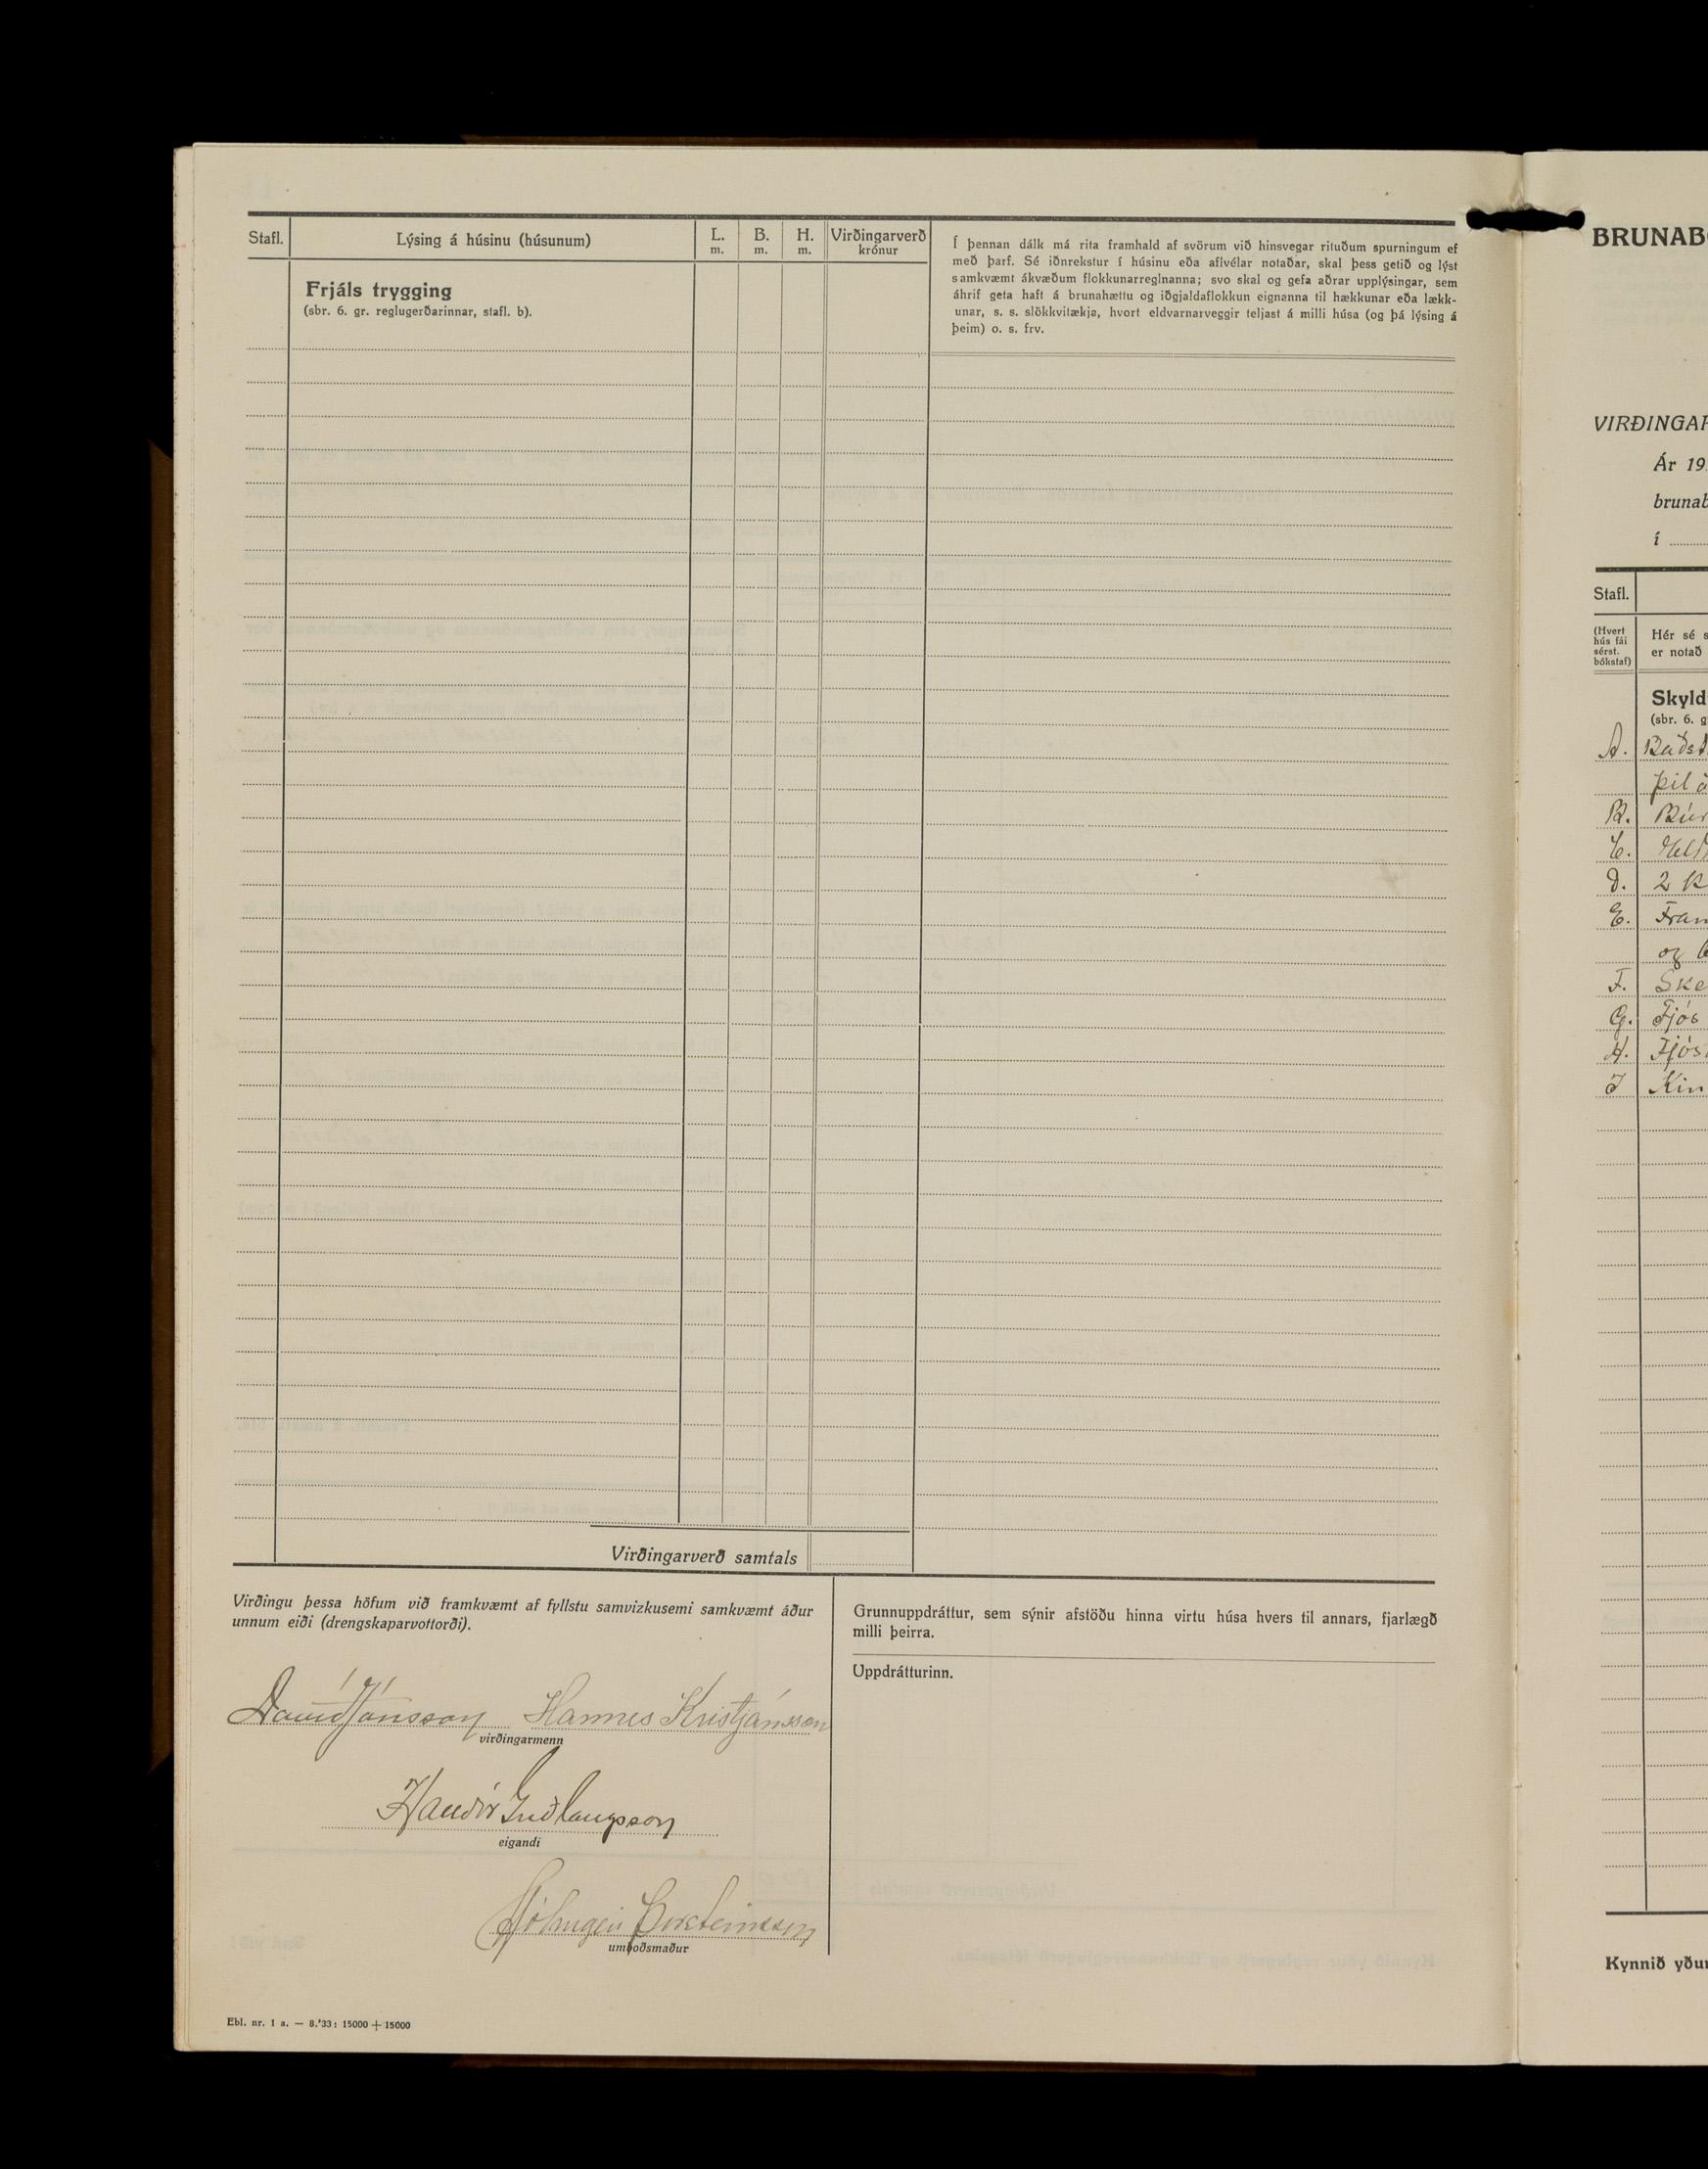 Stafl.
Lýsing á húsinu (húsunum)
L.
m.
B.
m.
H.
m.
Virðingarverð
krónur
Í þennan dálk má rita framhald af svörum við hinsvegar rituðum spurningum ef
með þarf. Sé iðnrekstur í húsinu eða aflvélar notaðar, skal þess getið og lýst
samkvæmt ákvæðum flokkunarreglnanna; svo skal og gefa aðrar upplýsingar, sem
áhrif geta haft á brunahættu og iðgjaldaflokkun eignanna til hækkunar eða lækk-
unar, s. s. slökkvitækja, hvort eldvarnarveggir teljast á milli húsa (og þá lýsing á
þeim) o. s. frv.
Frjáls trygging
(sbr. 6. gr. reglugerðarinnar, stafl. b).
Virðingarverð samtals
Virðingu þessa höfum við framkvæmt af fyllstu samvizkusemi samkvæmt áður
unnum eiði (drengskaparvottorði).
Davíð Jónsson Hannes Kristjánsson
virðingarmenn
Guðlaugsson
eigandi
Hólmgeir Þorsteinsson
umboðsmaður
Grunnuppdráttur, sem sýnir afstöðu hinna virtu húsa hvers til annars, fjarlægð
milli þeirra.
Uppdrátturinn.
Ebl. nr. 1 a. — 8.'33: 15000 + 15000
BRUNAB
VIRÐINGAR
Ár 19
brunab
í
Stafl.
(Hvert
hús fái
sérst.
bókstaf)
Hér sé s
er notað
Skyld
(sbr. 6. g
A. Baðst
þil á
B. Búr
C. Eld
D. 2 k
E. Fram
og
F. Ske
G. Fjós
H. Fjós
I Kin
Kynnið yður